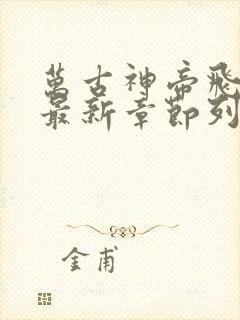 萬古神帝飛
最新章節列
金甫